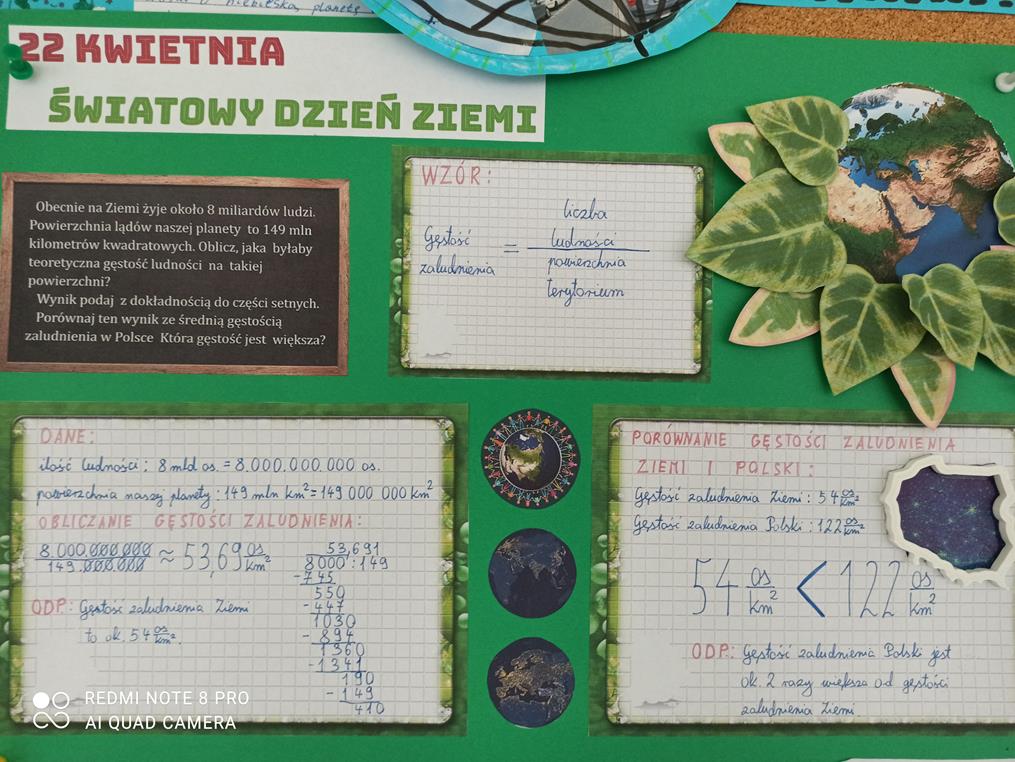 22 KWIETNIA
ŚWIATOWY DZIEŃ ZIEMI
Obecnie na Ziemi żyje około 8 miliardów ludzi.
Powierzchnia lądów naszej planety to 149 mln
kilometrów kwadratowych. Oblicz, jaka byłaby
teoretyczna gęstość ludności na takiej
powierzchni?
Wynik podaj z dokładnością do części setnych.
Porównaj ten wynik ze średnią gęstością
zaludnienia w Polsce Która gęstość jest większa?
WZÓR:
Gęstość zaludnienia = liczba ludności / powierzchnia terytorium
DANE:
ilość ludności: 8 mld os. = 8.000.000.000 os.
powierzchnia naszej planety: 149 mln km² = 149 000 000 km²
OBLICZANIE GĘSTOŚCI ZALUDNIENIA:
8.000.000.000 / 149.000.000 ≈ 53,69 os/km²
53,691
8000 : 149
-745
550
-447
1030
-894
1360
-1341
190
-149
410
ODP: Gęstość zaludnienia Ziemi
to ok. 54 os/km².
PORÓWNANIE GĘSTOŚCI ZALUDNIENIA
ZIEMI I POLSKI:
Gęstość zaludnienia Ziemi: 54 os/km²
Gęstość zaludnienia Polski: 122 os/km²
54 os/km² < 122 os/km²
ODP: Gęstość zaludnienia Polski jest
ok. 2 razy większa od gęstości
zaludnienia Ziemi.
REDMI NOTE 8 PRO
AI QUAD CAMERA